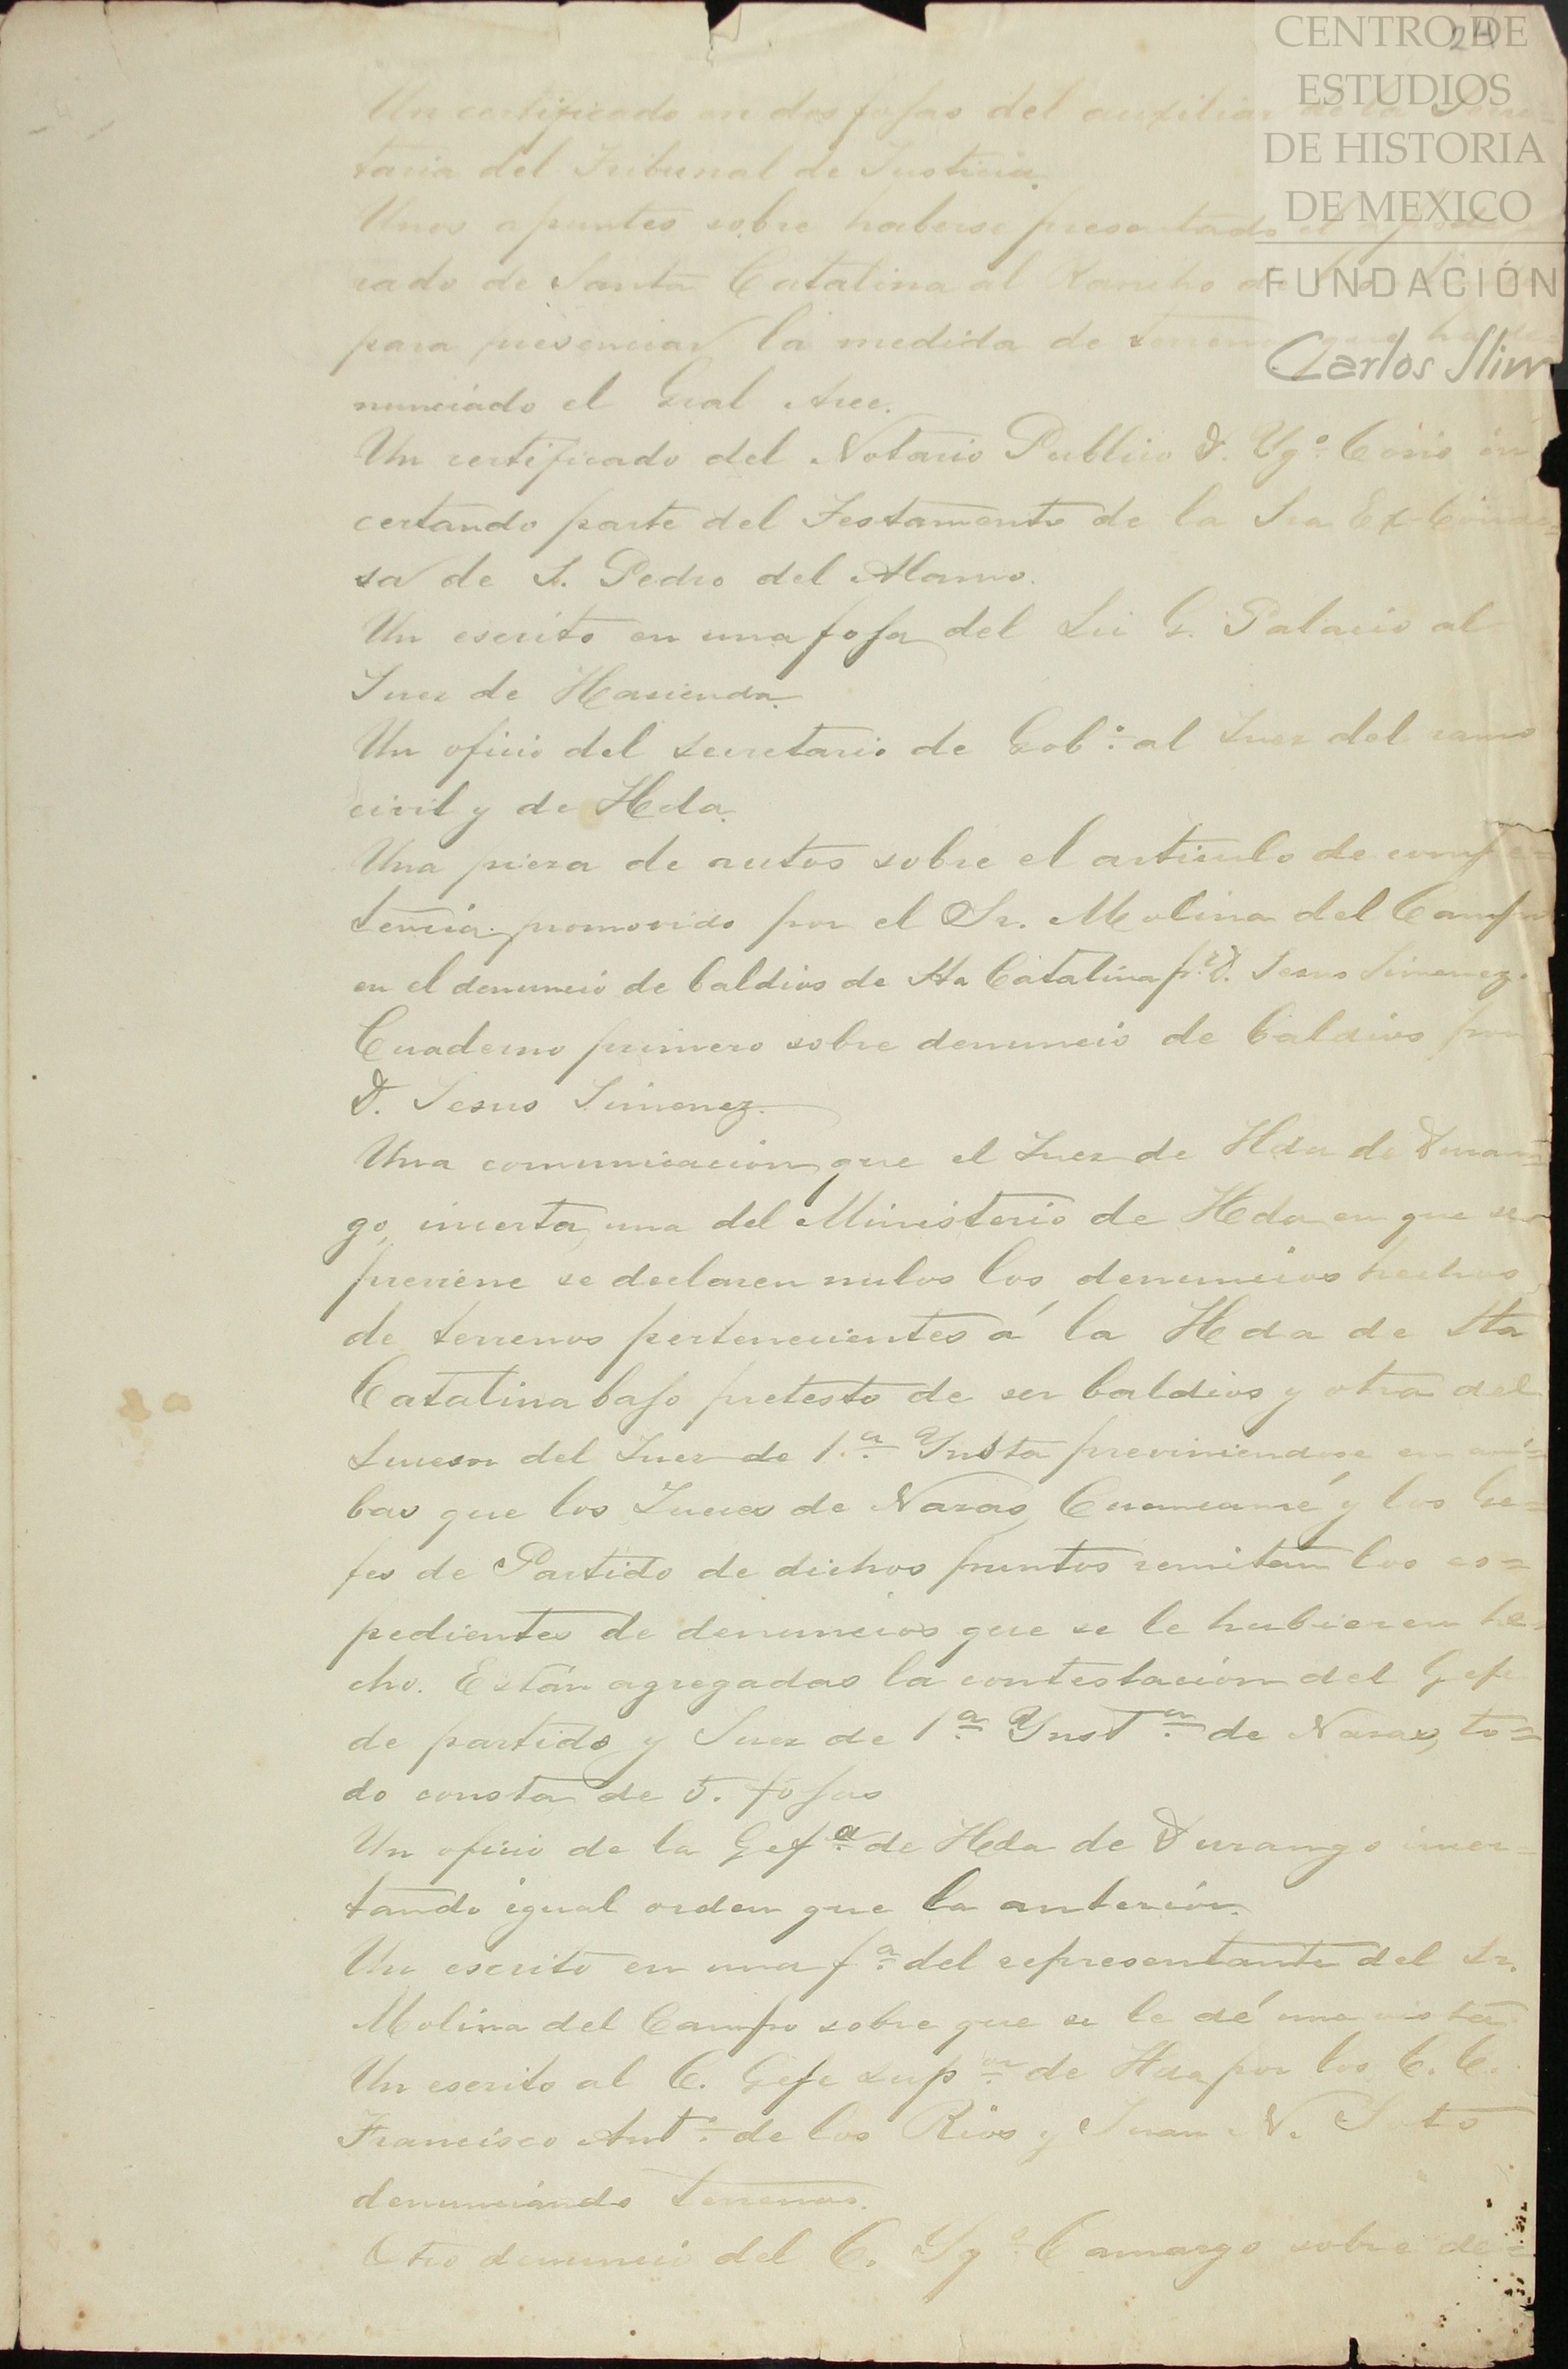 24
CENTRO DE
ESTUDIOS
DE HISTORIA
DE MEXICO
FUNDACIÓN
Carlos Slim
Un certificado en dos fojas del auxiliar de la Secre-
taria del Tribunal de Justicia.
Unos apuntes sobre haberse presentado el apode
rado de Santa Catalina al Rancho de
para presenciar la medida de terrenos que ha de
nunciado el Gral Arce.
Un certificado del Notario Publico D. Ygº. Coris in
certando parte del Testamento de la Sra Ex-Conde=
sa de S. Pedro del Alamo.
Un escrito en una foja del Lic G. Palacio al
Juez de Hasienda.
Un oficio del secretario de Gobº. al Juez del ramo
civil y de Hda.
Una pieza de autos sobre el articulo de compe=
tencia promovido por el Sr. Molina del Campo
en el denuncio de baldios de Sta Catalina pr. D. Jesus Jimenez.
Cuaderno primero sobre denuncio de baldios por
D. Jesus Jimenez.
Una comunicacion que el Juez de Hda de Duran=
go, incerta, una del Ministerio de Hda en que se
previene se declaren nulos los denuncios hechos
de terrenos pertenecientes á la Hda de Sta
Catalina bajo pretesto de ser baldios y otra del
del Juez de 1.ª Ynsta previniendose en am=
bas que los Jueces de Nazas, Cuencamé y los Ge=
fes de Partido de dichos puntos remitan los es=
pedientes de denuncios que se le hubieren he=
cho. Están agregadas la contestacion del Gefe
de partido y Juez de 1ª Ynstª. de Nazas, to=
do consta de 5. fojas
Un oficio de la Gefª. de Hda de Durango incer=
tando igual orden que la anterior.
Un escrito en una fª. del representante del Sr.
Molina del Campo sobre que se le dé una vista
Un escrito al C. Gefe supor. de Hda por los C. C.
Francisco Antº. de los Rios y Juan N. Soto
denunciando terrenos.
Otro denuncio del C. Ygº. Camargo sobre de=